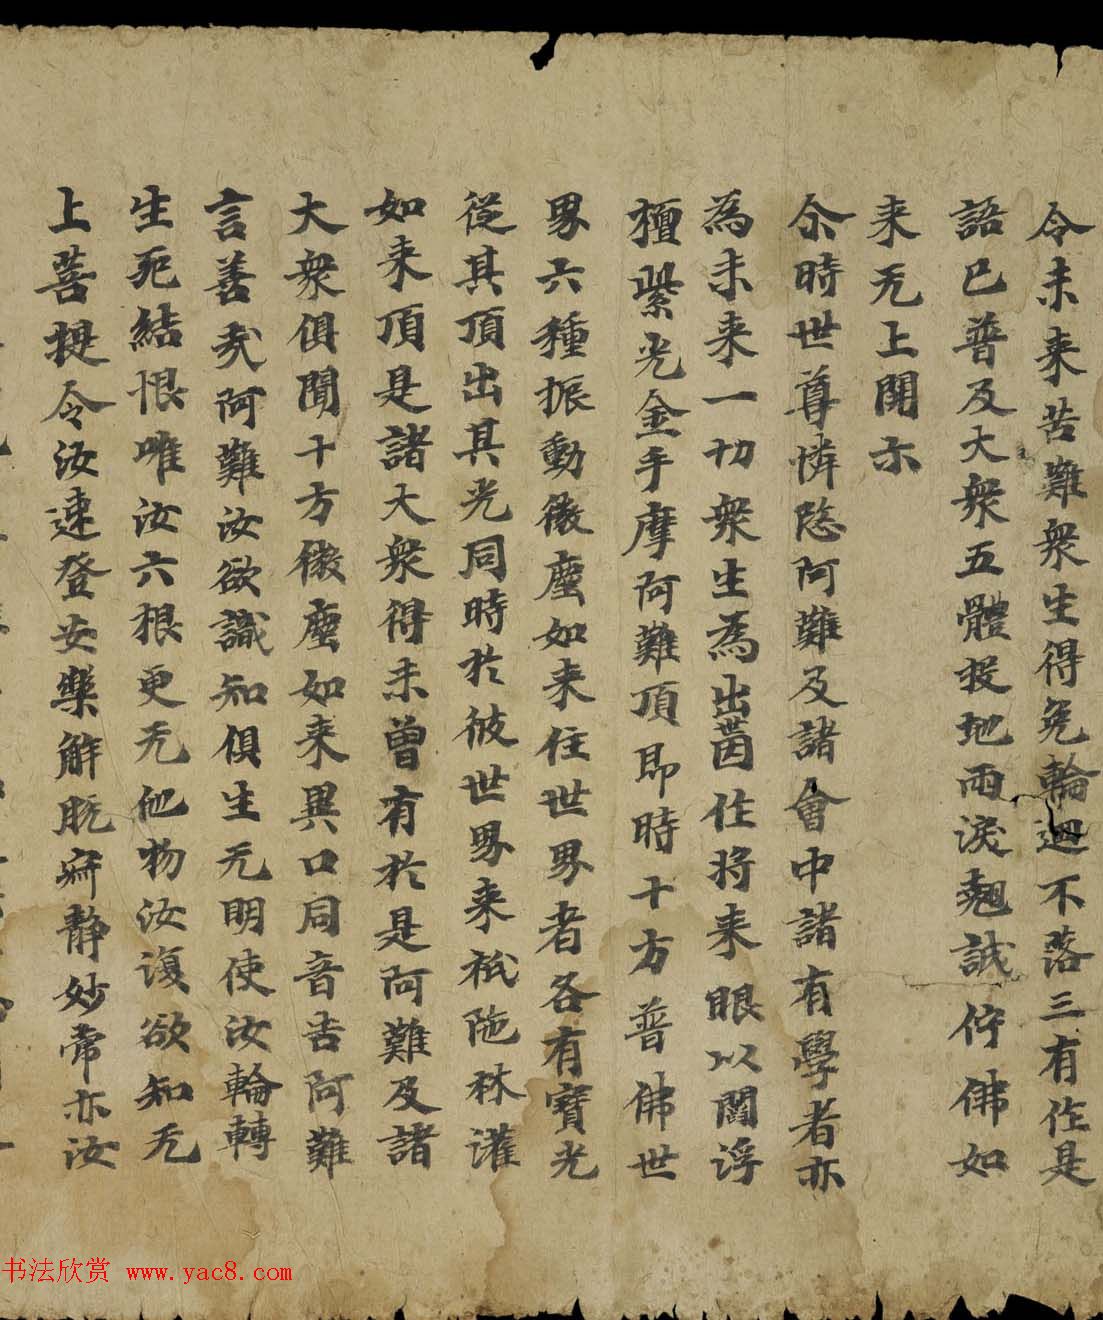 令未来苦難衆生得免輪迴不落三有作是
語已普及大衆五體投地雨淚翹誠佇佛如
来无上開示
尒時世尊憐愍阿難及諸會中諸有學者亦
為未来一切衆生為出世因住將来眼以閻浮
檀紫光金手摩阿難頂即時十方普佛世
界六種振動微塵如来住世界者各有寶光
從其頂出其光同時於彼世界来祇陁林灌
如来頂是諸大衆得未曾有於是阿難及諸
大衆俱聞十方微塵如来異口同音告阿難
言善哉阿難汝欲識知俱生无明使汝輪轉
生死結根唯汝六根更无他物汝復欲知无
上菩提令汝速登安樂解脫寂靜妙常亦汝
书法欣赏 www.yac8.com